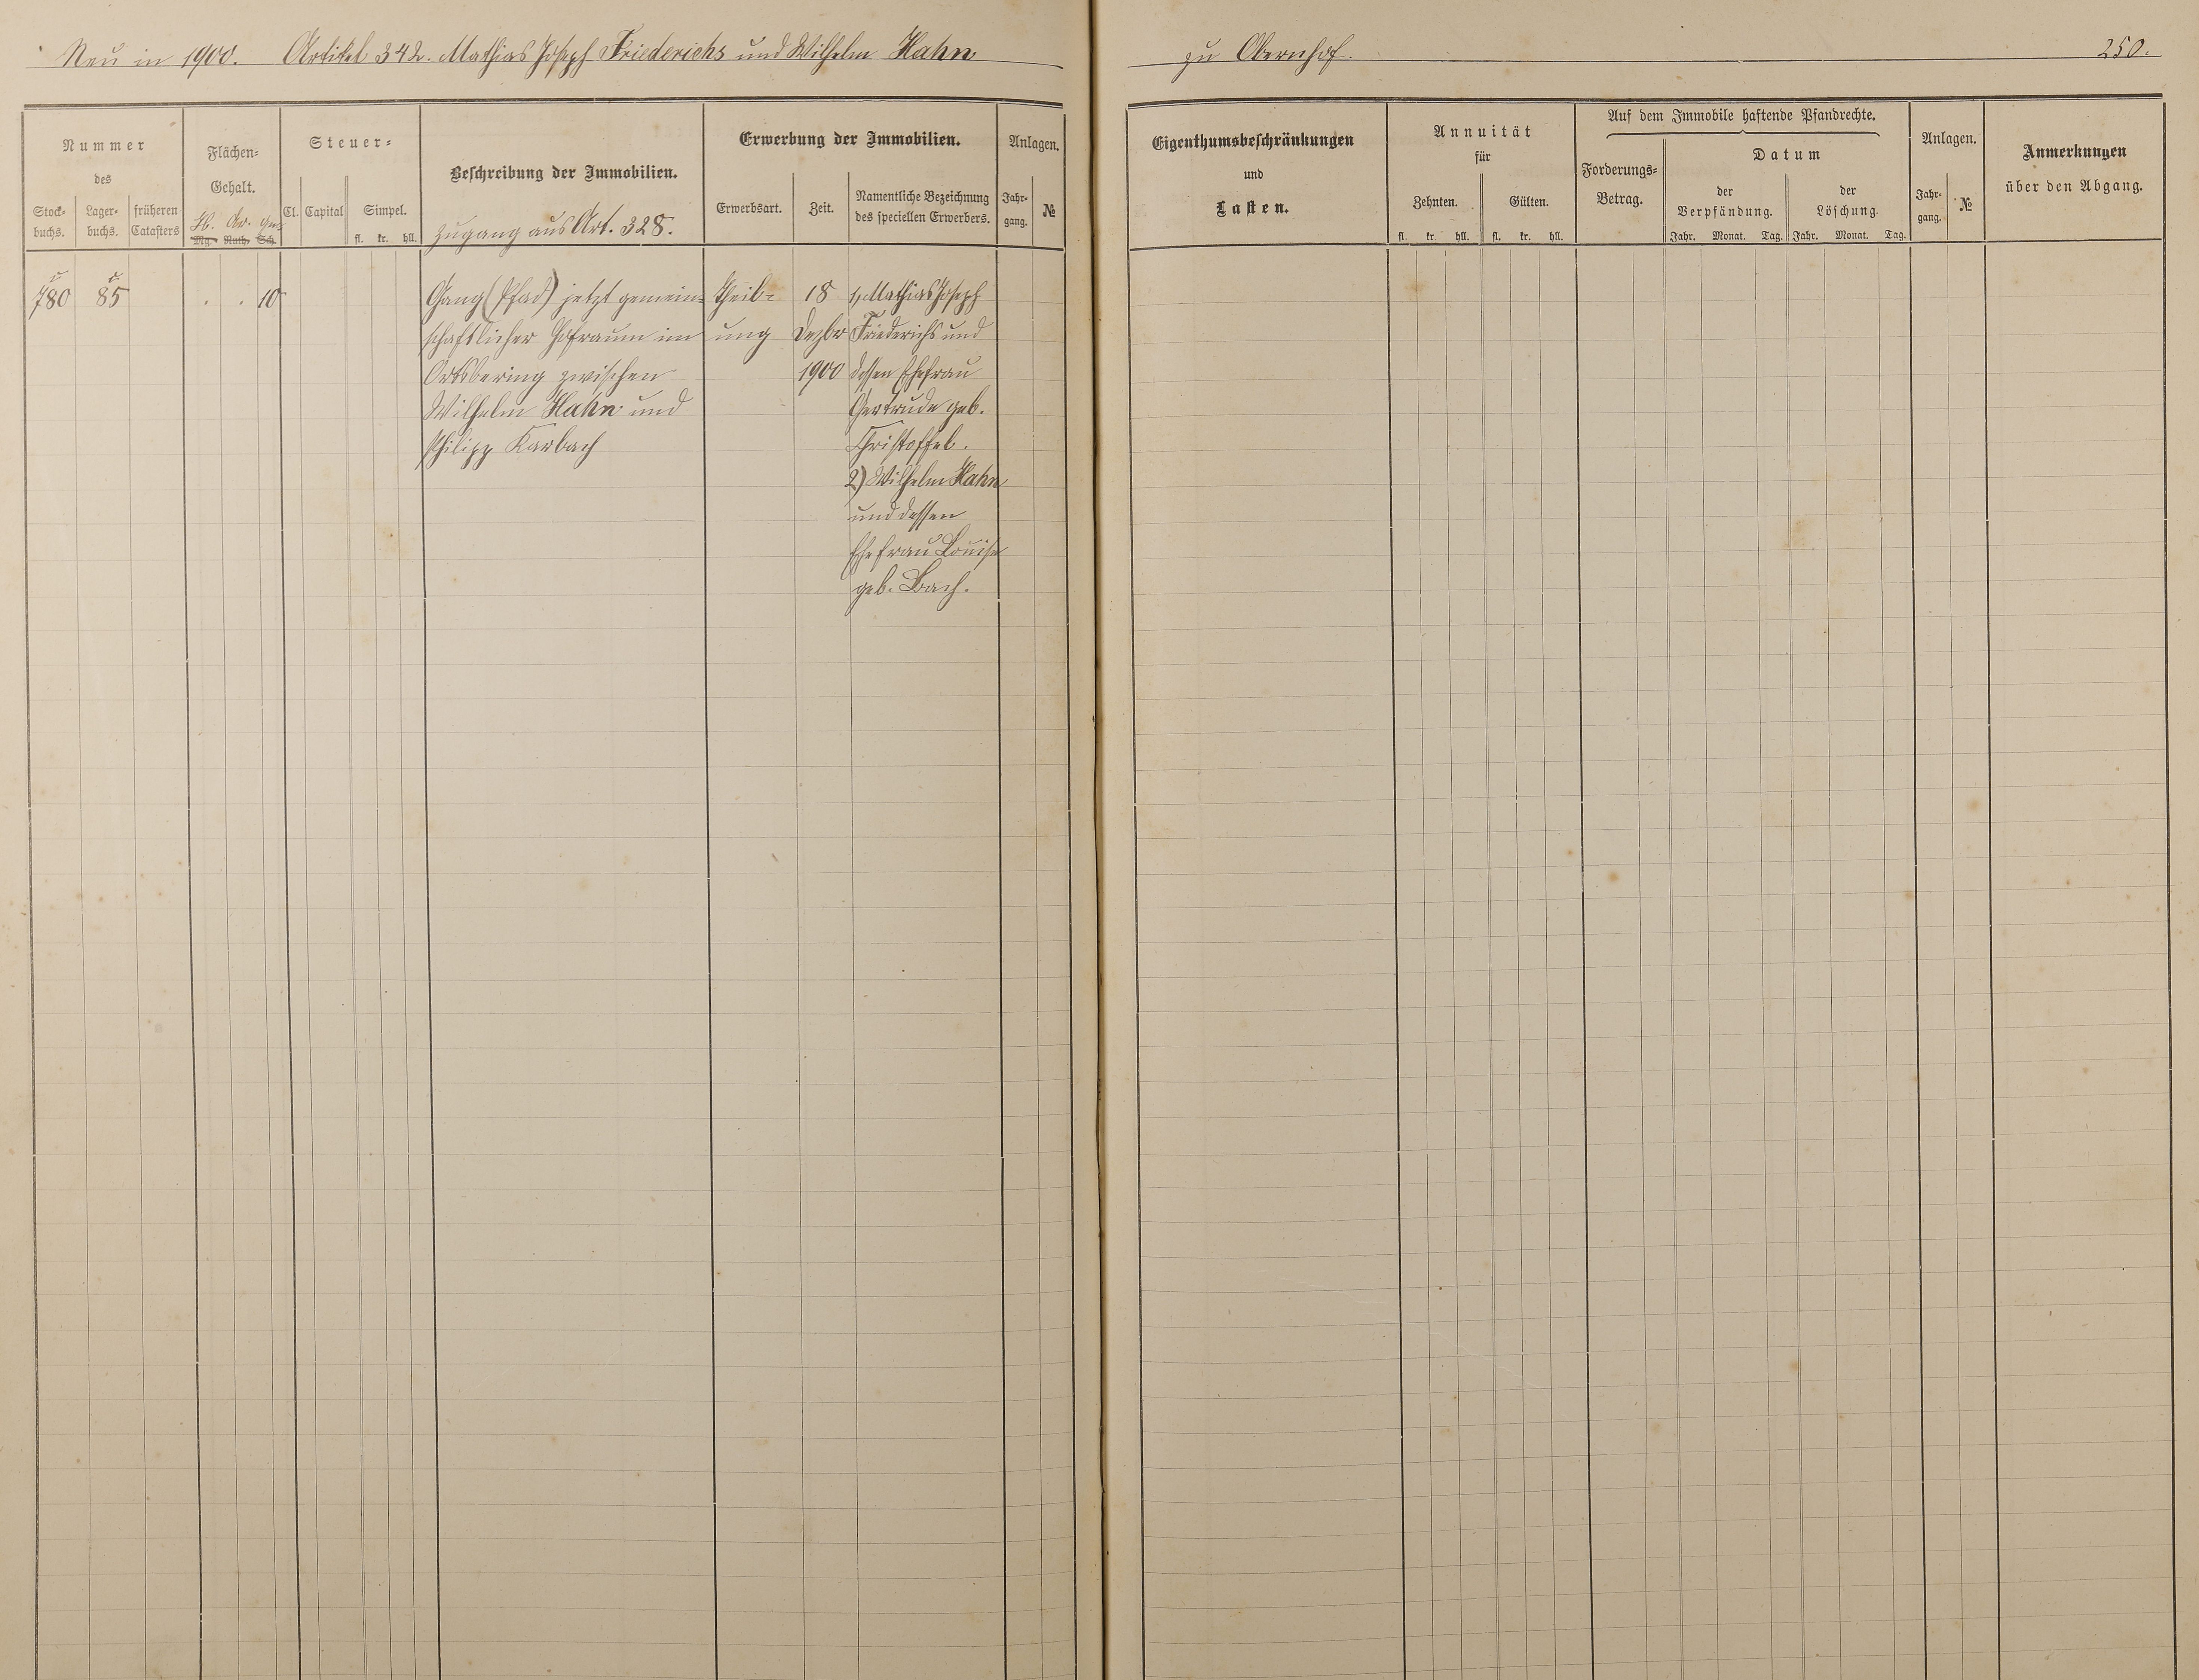 Neu in 1900. Artikel 342. Mathias Joseph Friederichs und Wilhelm Hahn
zu Obernhof. 250.
Nummer
des
Stock-
buchs.
Lager-
buchs.
früheren
Catasters
Flächen-
Gehalt.
H. Ar. qm
Mg. Ruth. Sch.
Steuer-
Cl. Capital Simpel.
fl. kr. hll.
Beschreibung der Immobilien.
Zugang aus Art. 328.
Erwerbung der Immobilien.
Erwerbsart. Zeit.
Namentliche Bezeichnung
des speciellen Erwerbers.
Anlagen.
Jahr-
gang.
№
Eigenthumsbeschränkungen
und
Lasten.
Annuität
für
Zehnten. Gülten.
fl. kr. hll. fl. kr. hll.
Auf dem Immobile haftende Pfandrechte.
Forderungs-
Betrag.
Datum
der
Verpfändung.
der
Löschung.
Jahr. Monat. Tag. Jahr. Monat. Tag.
Anlagen.
Jahr-
gang.
№
Anmerkungen
über den Abgang.
780 85 . . 10
Gang (Pfad) jetzt gemein-
schaftlicher Hofraum im
Ortsbering zwischen
Wilhelm Hahn und
Philipp Karbach
Theil-
ung
18
Dezbr
1900
1, Mathias Joseph
Friederichs und
dessen Ehefrau
Gertrude geb.
Christoffel.
2) Wilhelm Hahn
und dessen
Ehefrau Louise
geb. Bach.